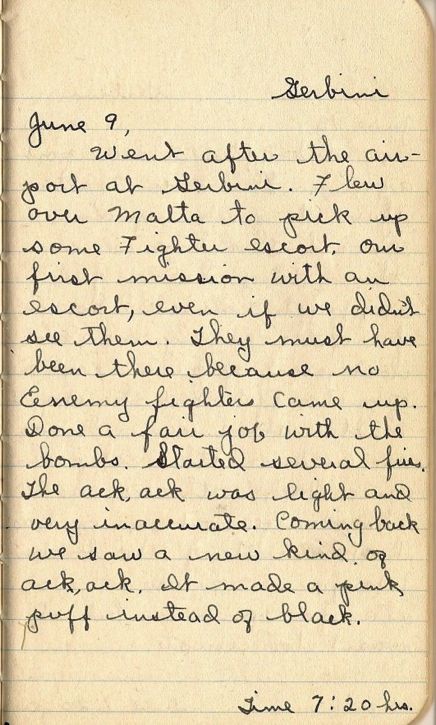 Gerbini
June 9,
Went after the air-
port at Gerbini. Flew
over Malta to pick up
some Fighter escort. our
first mission with an
escort, even if we didn't
see them. They must have
been there because no
Enemy fighters came up.
Done a fair job with the
bombs. Started several fires.
The ack, ack was light and
very inaccurate. Coming back
we saw a new kind of
ack, ack. It made a pink
puff instead of black.
Time 7:20 hrs.